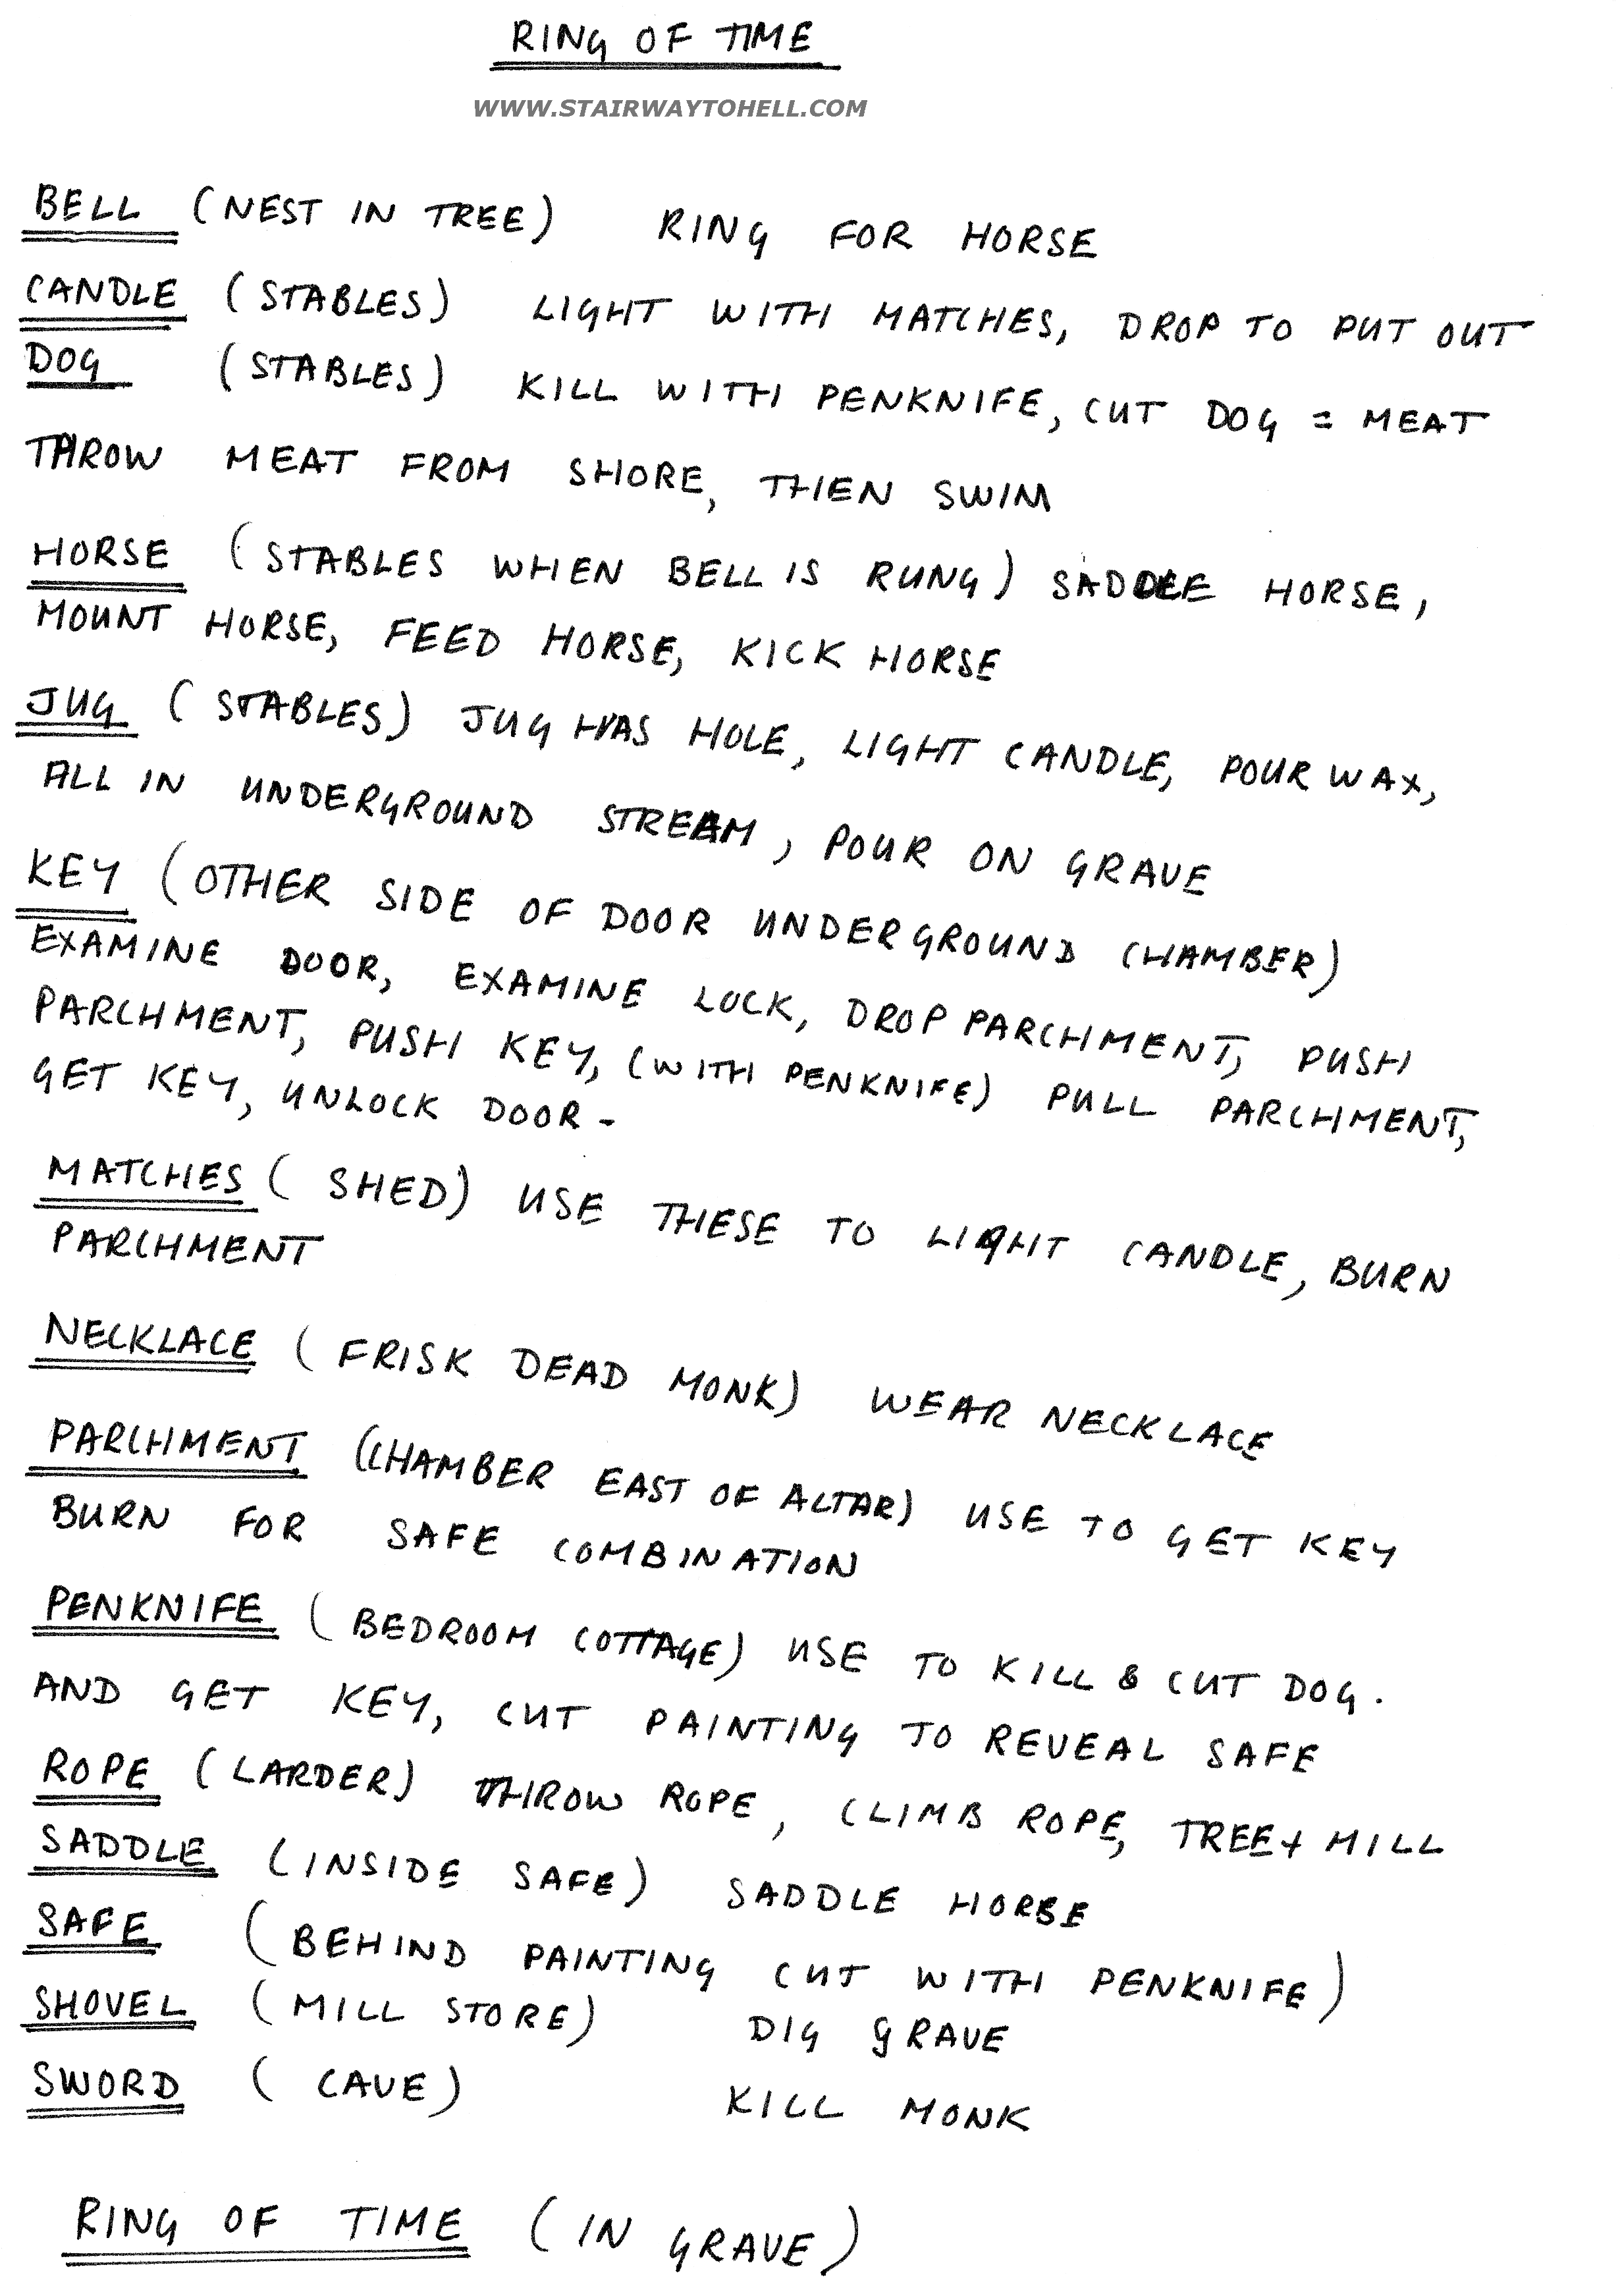 RING OF TIME
WWW.STAIRWAYTOHELL.COM
BELL (NEST IN TREE) RING FOR HORSE
CANDLE (STABLES) LIGHT WITH MATCHES, DROP TO PUT OUT
DOG (STABLES) KILL WITH PENKNIFE, CUT DOG = MEAT
THROW MEAT FROM SHORE, THEN SWIM
HORSE (STABLES WHEN BELL IS RUNG) SADDLE HORSE,
MOUNT HORSE, FEED HORSE, KICK HORSE
JUG (STABLES) JUG HAS HOLE, LIGHT CANDLE, POUR WAX,
FILL IN UNDERGROUND STREAM, POUR ON GRAVE
KEY (OTHER SIDE OF DOOR UNDERGROUND CHAMBER)
EXAMINE DOOR, EXAMINE LOCK, DROP PARCHMENT, PUSH
PARCHMENT, PUSH KEY, (WITH PENKNIFE) PULL PARCHMENT,
GET KEY, UNLOCK DOOR -
MATCHES (SHED) USE THESE TO LIGHT CANDLE, BURN
PARCHMENT
NECKLACE (FRISK DEAD MONK) WEAR NECKLACE
PARCHMENT (CHAMBER EAST OF ALTAR) USE TO GET KEY
BURN FOR SAFE COMBINATION
PENKNIFE (BEDROOM COTTAGE) USE TO KILL & CUT DOG.
AND GET KEY, CUT PAINTING TO REVEAL SAFE
ROPE (LARDER) THROW ROPE, CLIMB ROPE, TREE + MILL
SADDLE (INSIDE SAFE) SADDLE HORSE
SAFE (BEHIND PAINTING CUT WITH PENKNIFE)
SHOVEL (MILL STORE) DIG GRAVE
SWORD (CAVE) KILL MONK
RING OF TIME (IN GRAVE)